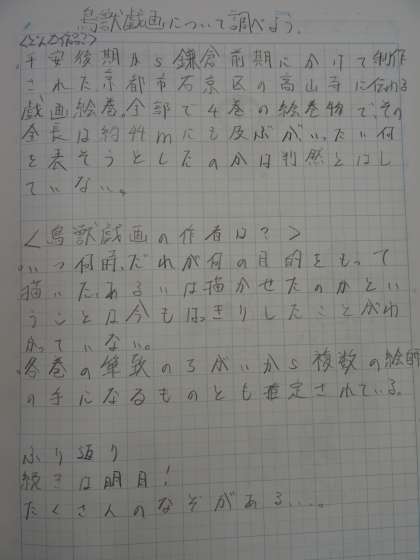 鳥獣戯画について調べよう。
<どんな作品?>
・平安後期から鎌倉前期にかけて制作
された、京都市右京区の高山寺に伝わる
戯画絵巻。全部で4巻の絵巻物で、その
全長は約44mにも及ぶが、いったい何
を表そうとしたのかは判然とはし
ていない。
<鳥獣戯画の作者は?>
・いつ何時、だれが何の目的をもって
描いた、あるいは描かせたのかとい
うことは今もはっきりしたことがわ
かっていない。
・各巻の筆致のちがいから複数の絵師
の手になるものとも推定されている。
ふり返り
続きは明日!
たくさんのなぞがある…。